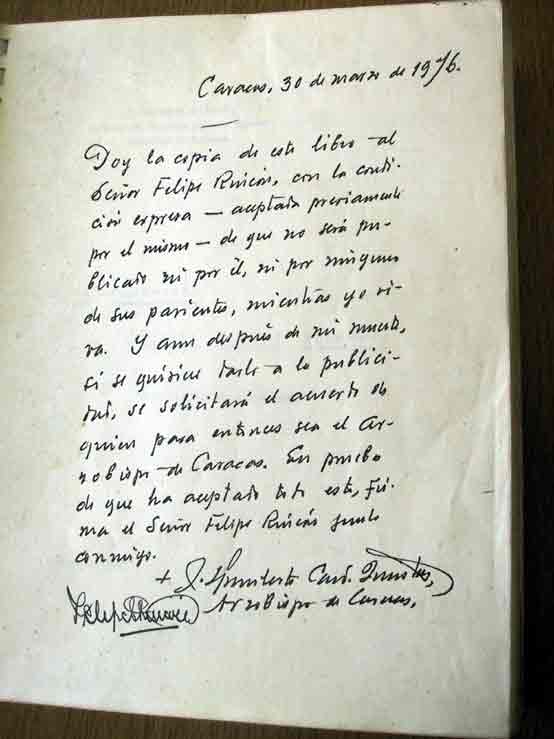 Caracas, 30 de marzo de 1976.
Doy la copia de este libro al
Señor Felipe Rincón, con la condi-
ción expresa — aceptada previamente
por el mismo — de que no será pu-
blicado ni por él, ni por ninguno
de sus parientes, mientras yo vi-
va. Y aun después de mi muerte,
si se quisiere darle a la publici-
dad, se solicitará el acuerdo de
quien para entonces sea el Ar-
zobispo de Caracas. En prueba
de que ha aceptado todo esto, fir-
ma el Señor Felipe Rincón junto
conmigo.
+ J. Humberto Card. Quintero,
Arzobispo de Caracas.